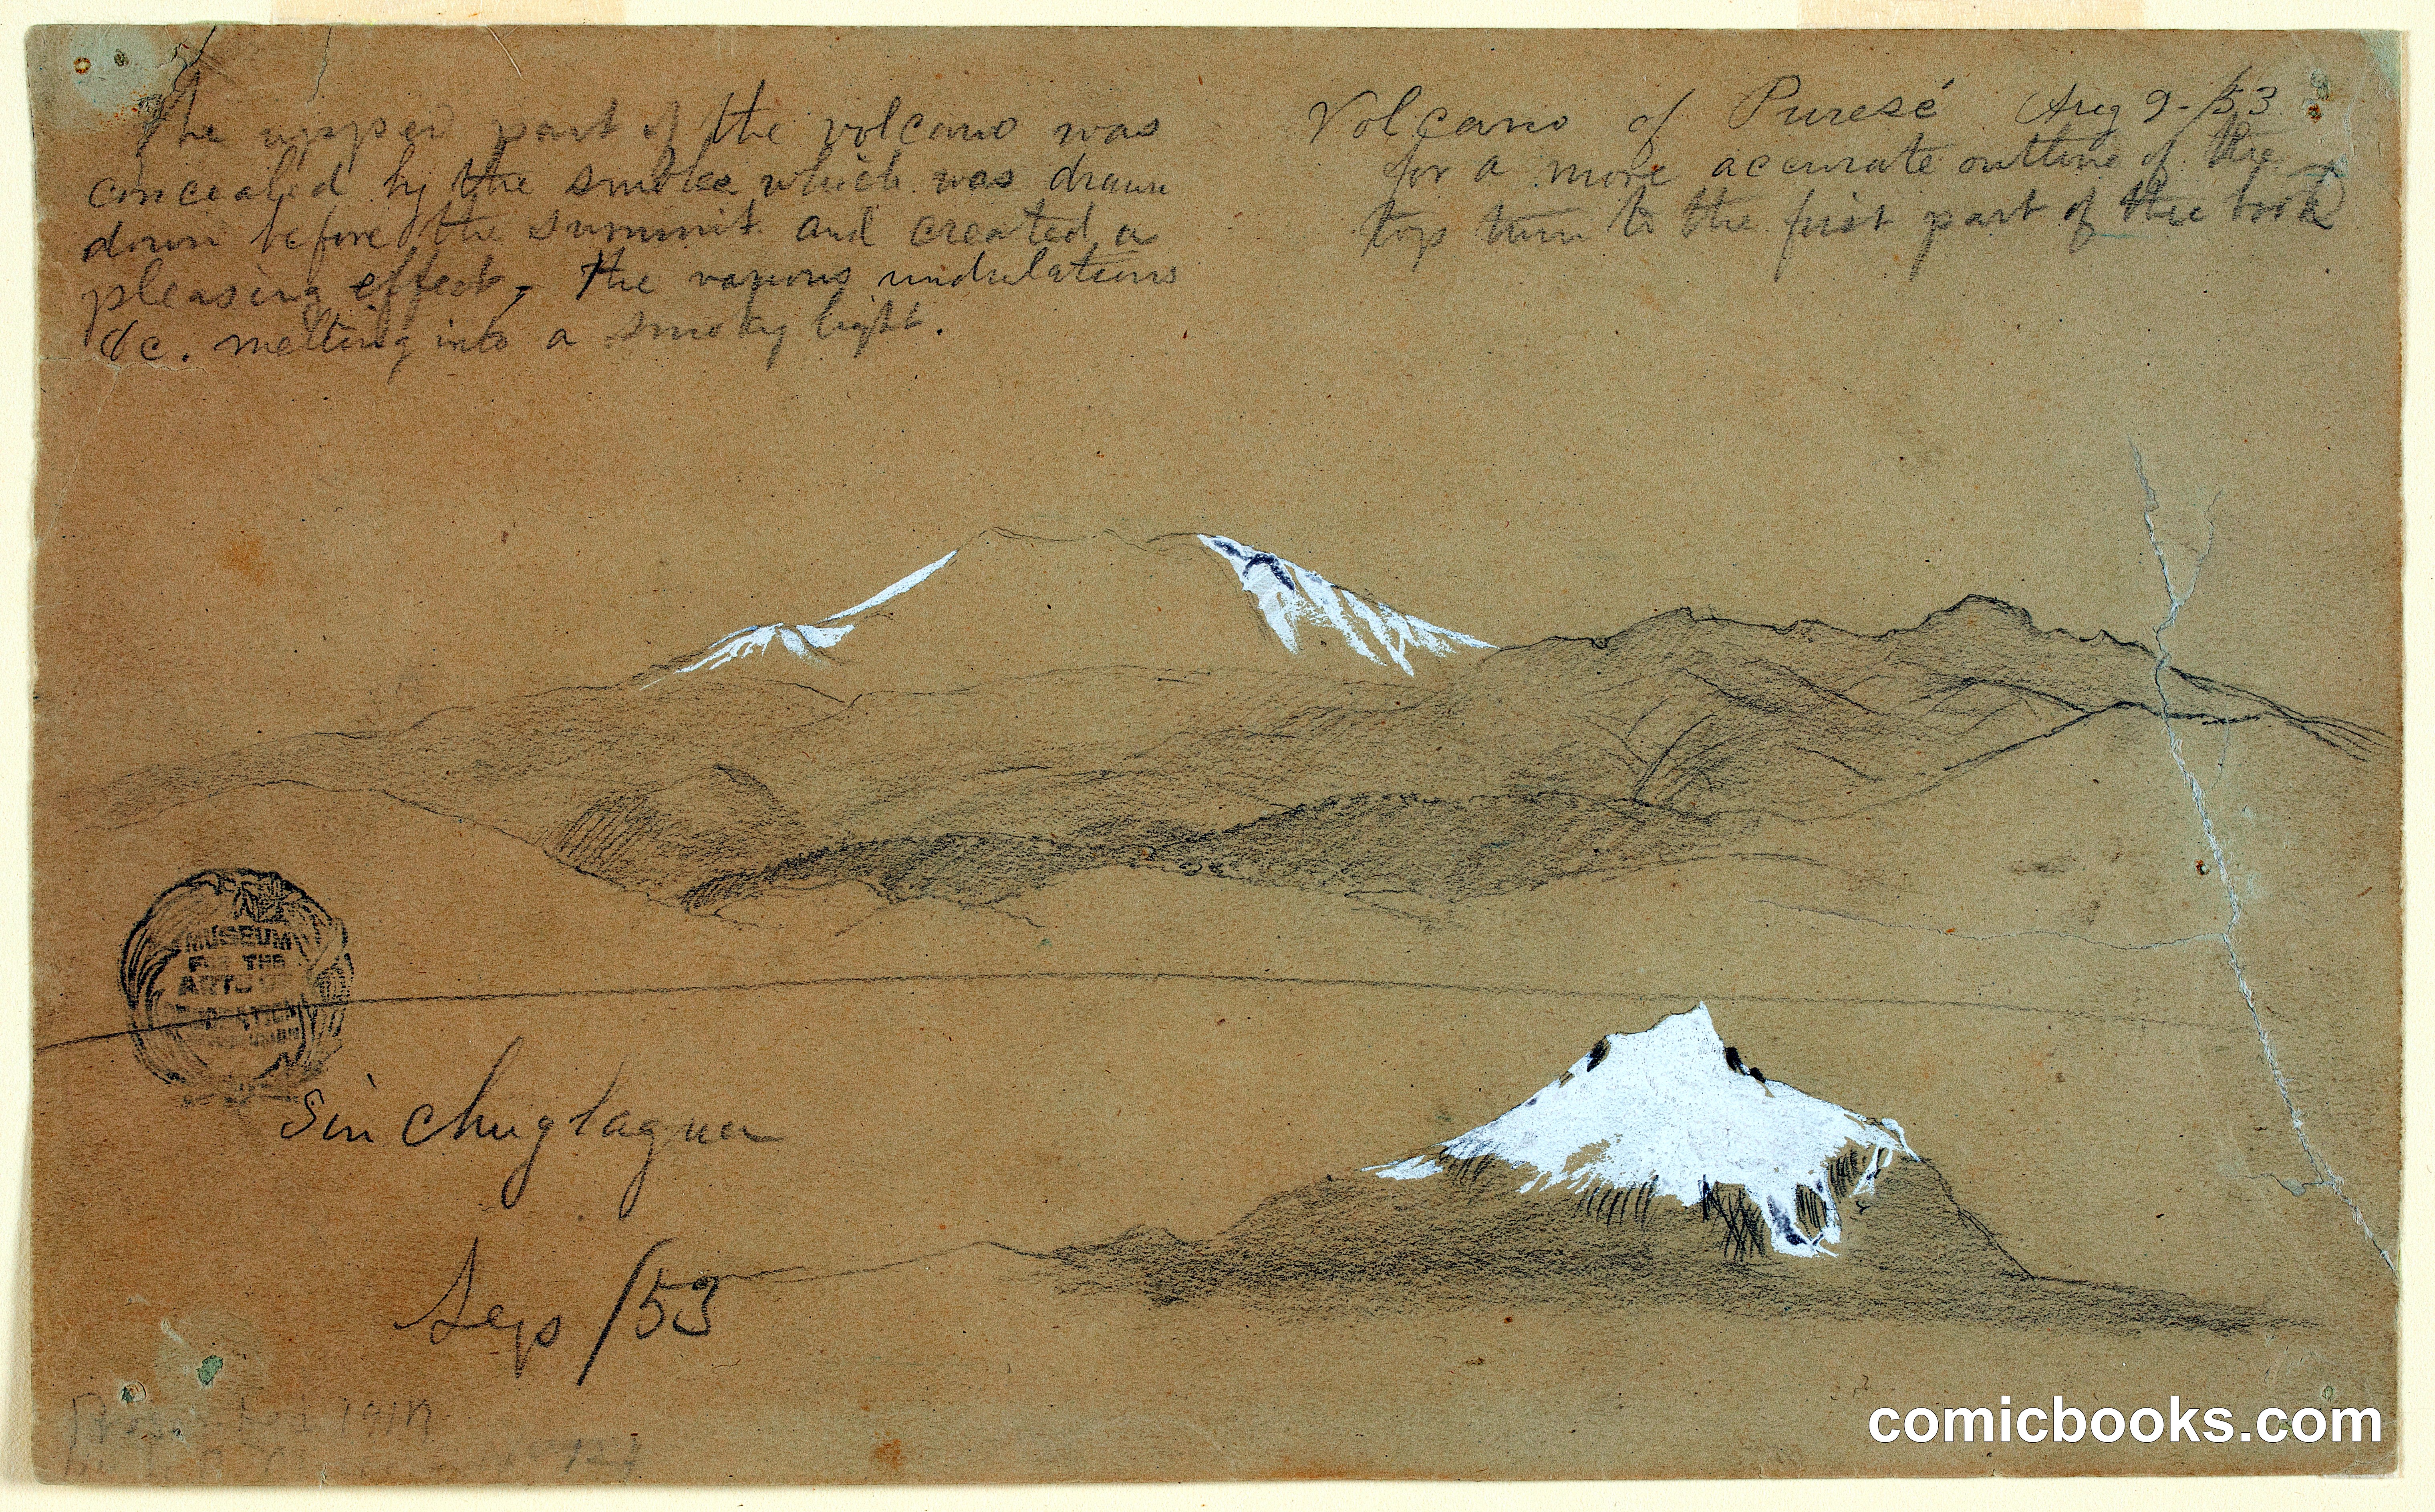 The upper part of the volcano was
concealed by the smoke which was drawn
down before the summit and created a
pleasing effect, the various undulations
&c. melting into a smoky light.
Volcano of Puresé Aug 9-/53
for a more accurate outline of the
top turn to the first part of the book
MUSEUM
FOR THE
ARTS OF
Sinchuglagua
Sep /53
comicbooks.com